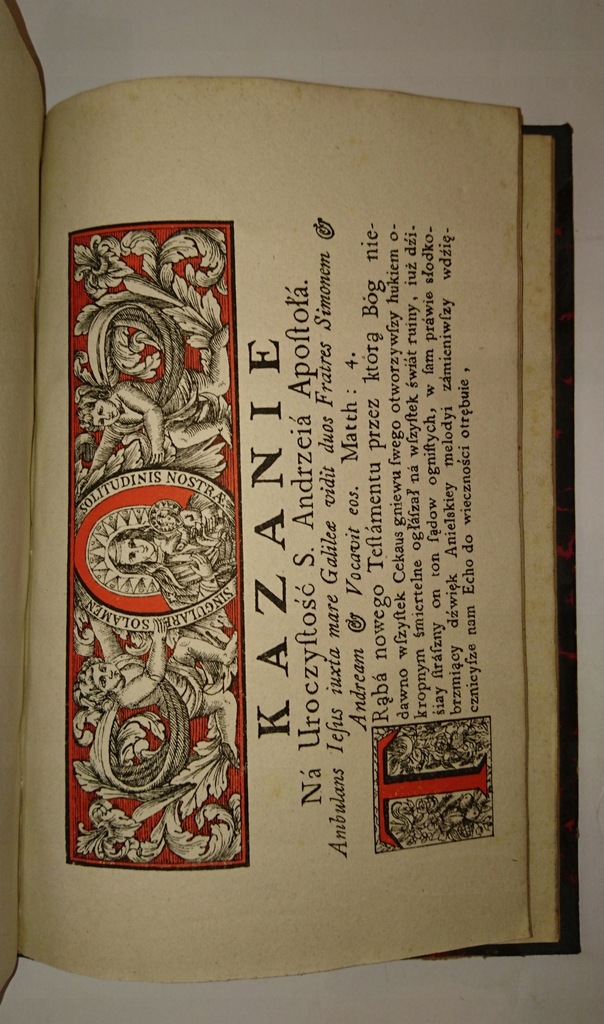 SINGULARE SOLAMEN SOLITUDINIS NOSTRÆ
KAZANIE
Ná Uroczyſtość S. Andrzeiá Apoſtołá.
Ambulans Ieſus iuxta mare Galileæ vidit duos Fratres Simonem &
Andream & Vocavit eos. Matth: 4.
TRąbá nowego Teſtámentu przez ktorą Bóg nie-
dawno wſzyſtek Cekaus gniewu ſwego otworzywſzy hukiem o-
kropnym śmiertelne ogłáſzał ná wſzyſtek świát ruiny, iuż dźi-
śiay ſtráſzny on ton ſądow ogniſtych, w ſam práwie słodko-
brzmiący dźwięk Anielskiey melodyi zámieniwſzy wdźię-
cznieyſze nam Echo do wieczności otrębuie,